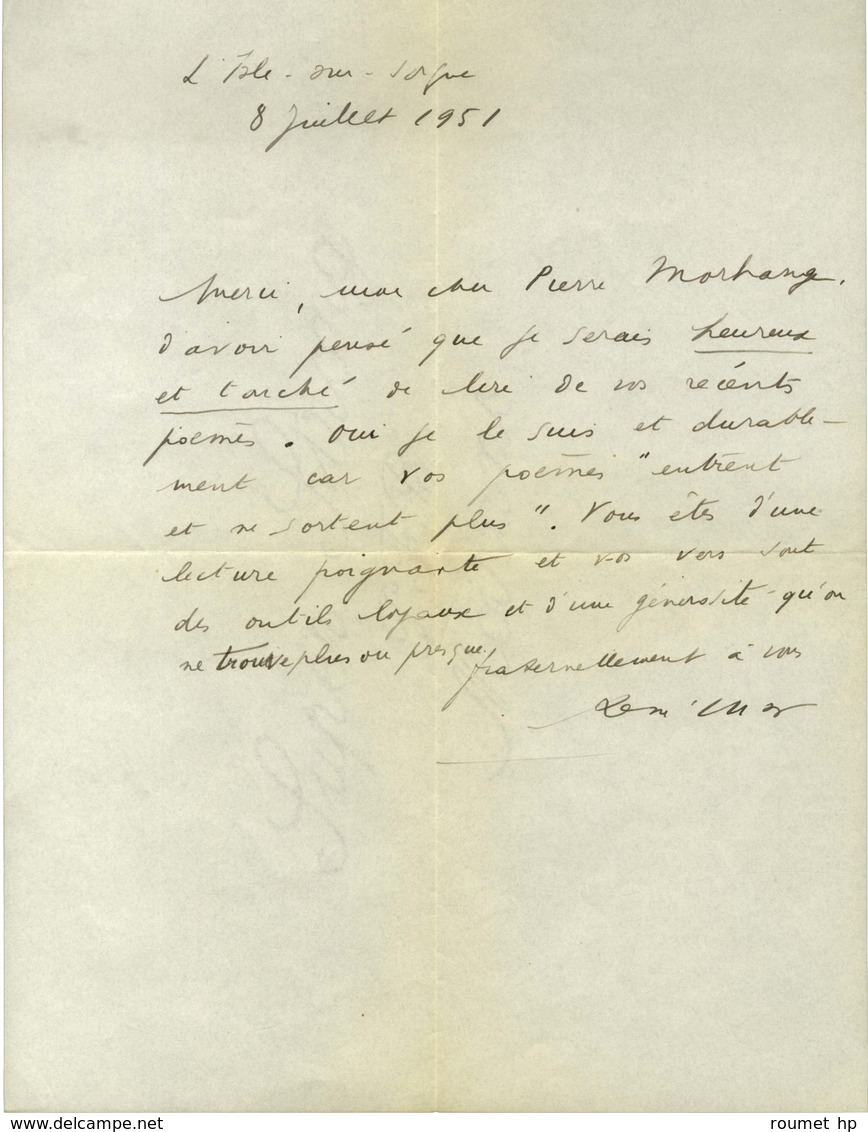 L'Isle-sur-Sorgue
8 juillet 1951
Merci, mon cher Pierre Morhange,
d'avoir pensé que je serais heureux
et touché de lire de vos récents
poèmes. Oui je le suis et durable-
ment car vos poèmes "entrent
et ne sortent plus". Vous êtes d'une
lecture poignante et vos vers sont
des outils loyaux et d'une générosité qu'on
ne trouve plus ou presque.
fraternellement à vous
René Char
www.delcampe.net
roumet hp